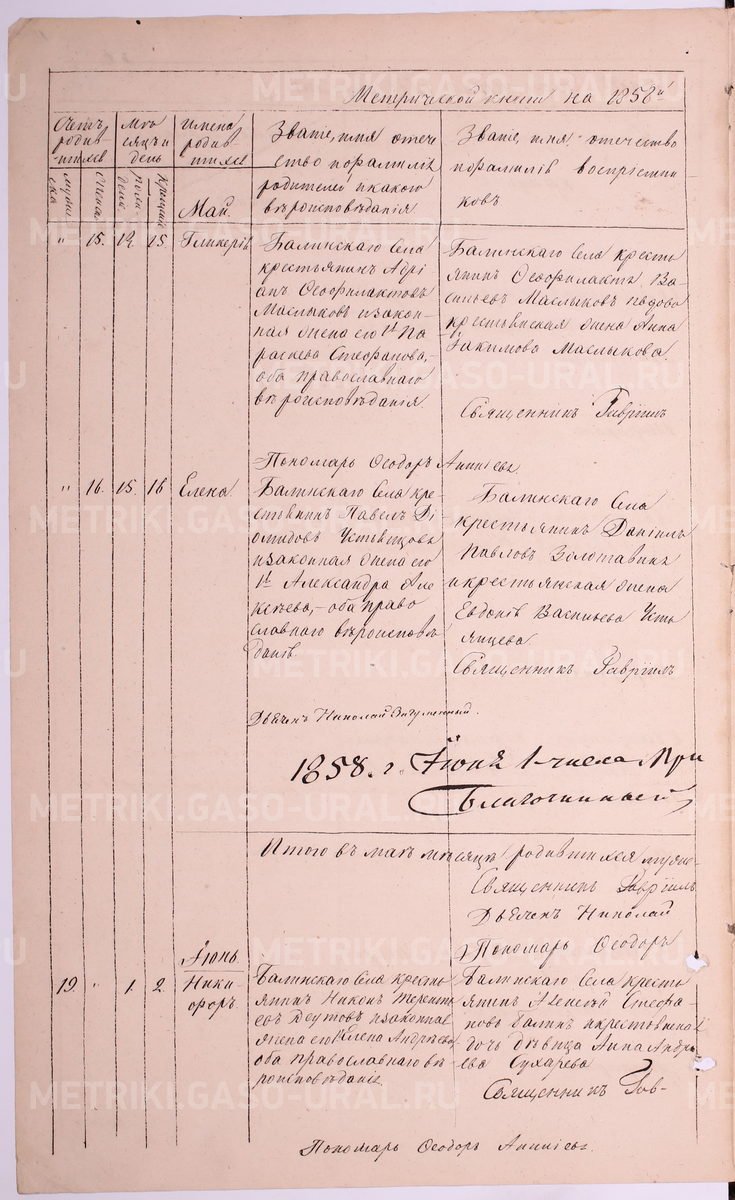 Метрической книги на 1858й
Счетъ родив-шихся
Мѣсяцъ и день
Имена родив-шихся
Званіе, имя отече
ство и фамилія
родителей и какого
вѣроисповѣданія.
Званіе, имя, отечество
и фамилія воспріемни-
ковъ
мужеска
женска
рожденія
крещенія
Май.
" 15. 14. 15. Гликерія
Балинскаго Села
крестьянинъ Адрі
анъ Ѳеофилактовъ
Маслыковъ и закон-
ная жена его 1й Па
раскева Стефанова,-
оба православнаго
вѣроисповѣданія.
Балинскаго Села кресть
янинъ Ѳеофилактъ Ва-
сильевъ Маслыковъ и вдова
крестьянская жена Анна
Іакимова Маслыкова.
Священникъ Гавріилъ
Пономарь Ѳеодоръ Аппіевъ
" 16. 15. 16 Елена.
Балинскаго Села кре-
стьянинъ Павелъ Ді
омидовъ Устьянцовъ
и законная жена его
1й Александра Але
ксѣева,- оба право
славнаго вѣроисповѣ
данія.
Балинскаго Села
крестьянинъ Даніилъ
Павловъ Золотавинъ
и крестьянская жена
Евдокія Васильева Усть
янцева.
Священникъ Гавріилъ
Дьячекъ Николай
1858. г. Іюня 1-числа При
Благочинный
Итого въ маѣ мѣсяцѣ родившихся муже-
Священникъ Гавріилъ
Дьячекъ Николай
Пономарь Ѳеодоръ
Іюнь
19. " 1. 2. Ники-
форъ.
Балинскаго Села кресть
янинъ Никонъ Теренть
евъ Реутовъ и законная
жена его Елена Андреева
оба православнаго вѣ-
роисповѣданія.
Балинскаго Села кресть
янинъ Алексѣй Стефа-
новъ Балинъ и крестьянская
дочь дѣвица Анна Андре-
ева Сухарева
Священникъ Гав-
Пономарь Ѳеодоръ Аппіевъ.
METRIKI.GASO-URAL.RU